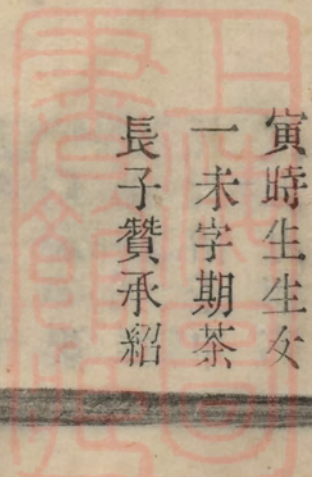 寅時生生女
一未字期茶
長子贊承紹